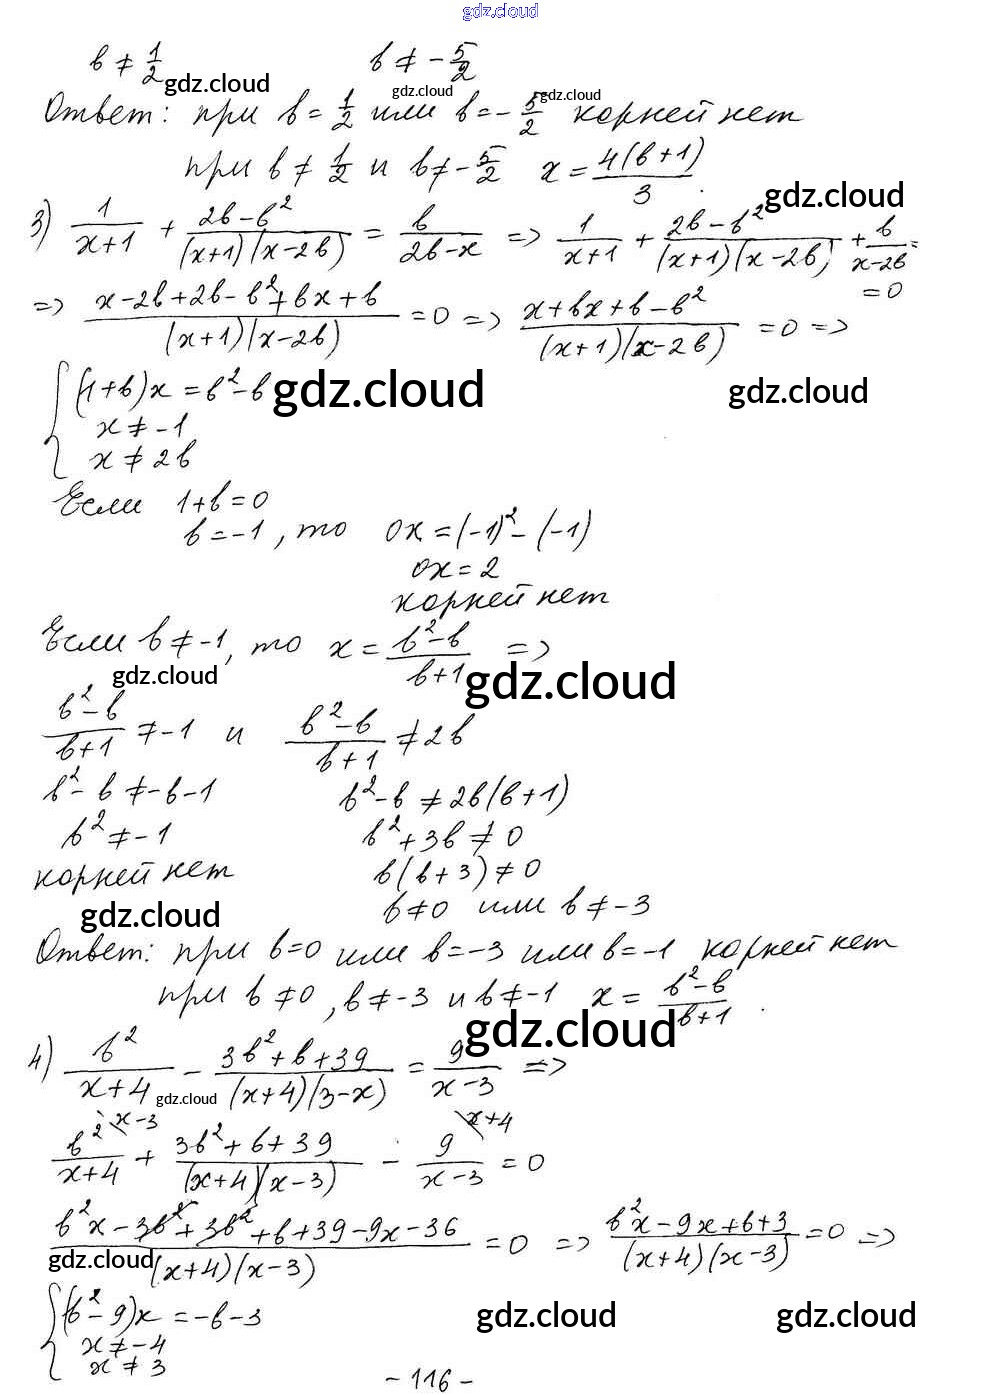 gdz.cloud
b ≠ 1/2    b ≠ -5/2
gdz.cloud gdz.cloud gdz.cloud
Ответ: при b = 1/2 или b = -5/2 корней нет
при b ≠ 1/2 и b ≠ -5/2  x = 4(b+1)/3.
gdz.cloud
3) 1/(x+1) + (2b-b²)/((x+1)(x-2b)) = b/(2b-x) => 1/(x+1) + (2b-b²)/((x+1)(x-2b)) + b/(x-2b) =
= 0
=> (x-2b+2b-b²+bx+b)/((x+1)(x-2b)) = 0 => (x+bx+b-b²)/((x+1)(x-2b)) = 0 =>
{ (1+b)x = b²-b
gdz.cloud gdz.cloud
x ≠ -1
x ≠ 2b
Если 1+b=0
b=-1, то 0x = (-1)² - (-1)
0x = 2
корней нет
Если b ≠ -1, то x = (b²-b)/(b+1) =>
gdz.cloud gdz.cloud
(b²-b)/(b+1) ≠ -1 и (b²-b)/(b+1) ≠ 2b
b²-b ≠ -b-1    b²-b ≠ 2b(b+1)
b² ≠ -1    b²+3b ≠ 0
корней нет    b(b+3) ≠ 0
gdz.cloud b≠0 или b ≠ -3
Ответ: при b=0 или b=-3 или b=-1 корней нет
при b ≠ 0, b ≠ -3 и b ≠ -1  x = (b²-b)/(b+1).
gdz.cloud
4) b²/(x+4) - (3b²+b+39)/((x+4)(3-x)) = 9/(x-3) =>
gdz.cloud
b²\x-3/(x+4) + (3b²+b+39)/((x+4)(x-3)) - 9\x+4/(x-3) = 0
(b²x-3b²+3b²+b+39-9x-36)/((x+4)(x-3)) = 0 => (b²x-9x+b+3)/((x+4)(x-3)) = 0 =>
gdz.cloud
{ (b²-9)x = -b-3
gdz.cloud gdz.cloud
x ≠ -4
x ≠ 3
- 116 -